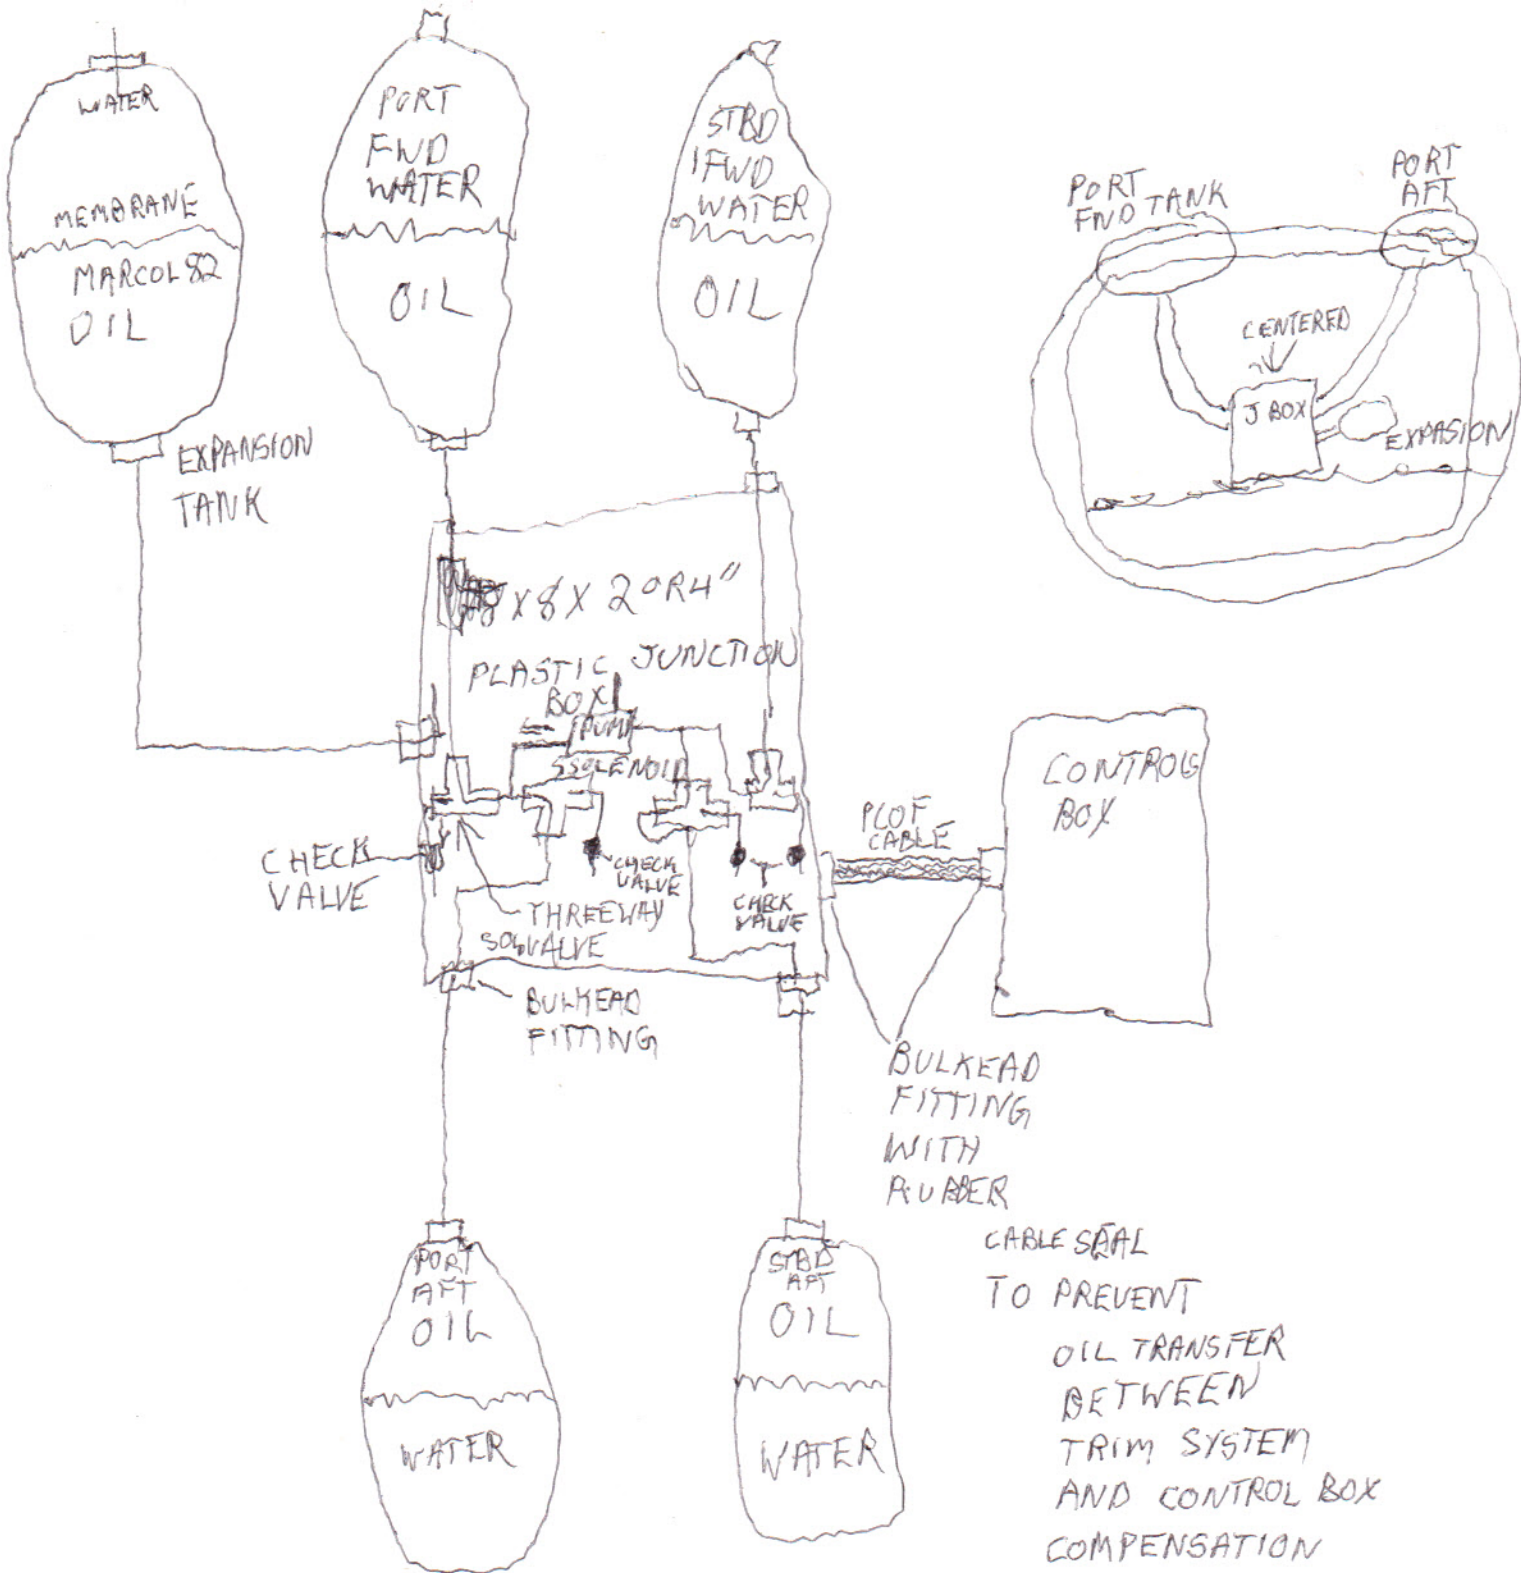 WATER
MEMBRANE
MARCOL 82
OIL
EXPANSION
TANK
PORT
FWD
WATER
OIL
STBD
FWD
WATER
OIL
PORT
FWD TANK
PORT
AFT
CENTERED
J BOX
EXPASION
8 X 8 X 2 OR 4"
PLASTIC JUNCTION
BOX
PUMP
SSOLENOID
CHECK
VALVE
CHECK
VALVE
CHECK
VALVE
THREEWAY
SOL VALVE
BULKEAD
FITTING
CONTROLS
BOX
PCOF
CABLE
BULKEAD
FITTING
WITH
RUBBER
CABLE SEAL
TO PREVENT
OIL TRANSFER
BETWEEN
TRIM SYSTEM
AND CONTROL BOX
COMPENSATION
PORT
AFT
OIL
WATER
STBD
AFT
OIL
WATER